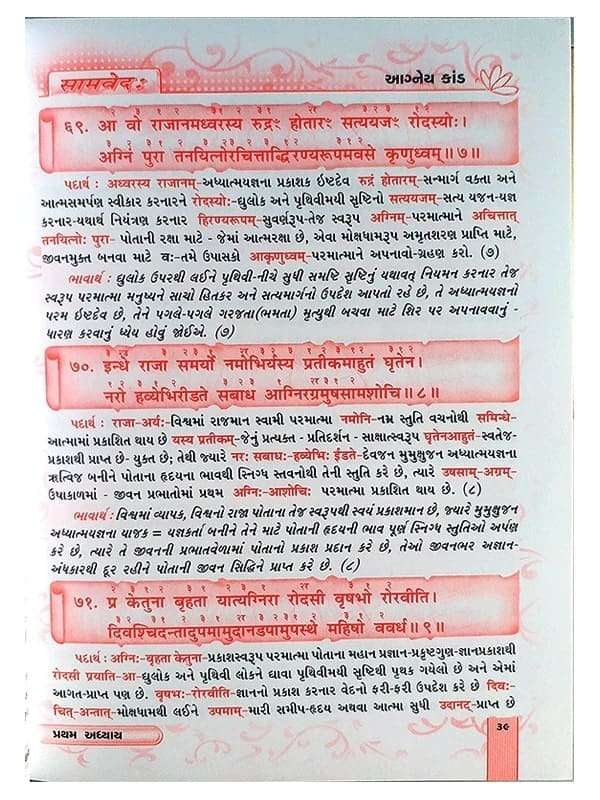 સામવેદઃ
આગ્નેય કાંડ
६९. आ वो राजानमध्वरस्य रुद्रꣳ होतारꣳ सत्ययजꣳ रोदस्योः।
अग्निं पुरा तनयित्नोरचित्ताद्धिरण्यरूपमवसे कृणुध्वम्॥७॥
પદાર્થ : અધ્વરસ્ય રાજાનમ્-અધ્યાત્મયજ્ઞના પ્રકાશક ઇષ્ટદેવ રુદ્રં હોતારમ્-સન્માર્ગ વક્તા અને
આત્મસમર્પણ સ્વીકાર કરનારને રોદસ્યોઃ-દ્યુલોક અને પૃથિવીમયી સૃષ્ટિનો સત્યયજમ્-સત્ય યજન-યજ્ઞ
કરનાર-યથાર્થ નિયંત્રણ કરનાર હિરણ્યરૂપમ્-સુવર્ણરૂપ-તેજ સ્વરૂપ અગ્નિમ્-પરમાત્માને અચિત્તાત્
તનયિત્નોઃ પુરા- પોતાની રક્ષા માટે - જેમાં આત્મરક્ષા છે, એવા મોક્ષધામરૂપ અમૃતશરણ પ્રાપ્તિ માટે,
જીવનમુક્ત બનવા માટે વઃ-તમે ઉપાસકો આકૃણુધ્વમ્-પરમાત્માને અપનાવો-ગ્રહણ કરો. (૭)
ભાવાર્થ : દ્યુલોક ઉપરથી લઈને પૃથિવી-નીચે સુધી સમષ્ટિ સૃષ્ટિનું યથાવત્ નિયમન કરનાર તેજ
સ્વરૂપ પરમાત્મા મનુષ્યને સાચો હિતકર અને સત્યમાર્ગનો ઉપદેશ આપતો રહે છે, તે અધ્યાત્મયજ્ઞનો
પરમ ઇષ્ટદેવ છે, તેને પગલે-પગલે ગરજતા(ભમતા) મૃત્યુથી બચવા માટે શિર પર અપનાવવાનું -
ધારણ કરવાનું ધ્યેય હોવું જોઈએ. (૭)
७०. इन्धे राजा समर्यो नमोभिर्यस्य प्रतीकमाहुतं घृतेन।
नरो हव्येभिरीडते सबाध आग्निरग्रमुषसामशोचि॥८॥
પદાર્થ : રાજા-અર્યઃ-વિશ્વમાં રાજમાન સ્વામી પરમાત્મા નમોભિ-નમ્ર સ્તુતિ વચનોથી સમિન્ધે-
આત્મામાં પ્રકાશિત થાય છે યસ્ય પ્રતીકમ્-જેનું પ્રત્યક્ત - પ્રતિદર્શન - સાક્ષાત્સ્વરૂપ ઘૃતેનઆહુતં-સ્વતેજ-
પ્રકાશથી પ્રાપ્ત છે- યુક્ત છે; તેથી જ્યારે નરઃ સબાધઃ-હવ્યેભિઃ ઈંડતે-દેવજન મુમુક્ષુજન અધ્યાત્મયજ્ઞના
ઋત્વિજ બનીને પોતાના હૃદયના ભાવથી સ્નિગ્ધ સ્તવનોથી તેની સ્તુતિ કરે છે, ત્યારે ઉષસામ્-અગ્રમ્-
ઉષાકાળમાં - જીવન પ્રભાતોમાં પ્રથમ અગ્નિઃ-આશોચિઃ પરમાત્મા પ્રકાશિત થાય છે. (૮)
ભાવાર્થ : વિશ્વમાં વ્યાપક, વિશ્વનો રાજા પોતાના તેજ સ્વરૂપથી સ્વયં પ્રકાશમાન છે, જ્યારે મુમુક્ષુજન
અધ્યાત્મયજ્ઞના યાજક = યજ્ઞકર્તા બનીને તેને માટે પોતાની હૃદયની ભાવ પૂર્ણ સ્નિગ્ધ સ્તુતિઓ અર્પણ
કરે છે, ત્યારે તે જીવનની પ્રભાતવેળામાં પોતાનો પ્રકાશ પ્રદાન કરે છે, તેઓ જીવનભર અજ્ઞાન-
અંધકારથી દૂર રહીને પોતાની જીવન સિદ્ધિને પ્રાપ્ત કરે છે. (૮)
७१. प्र केतुना बृहता यात्यग्निरा रोदसी वृषभो रोरवीति।
दिवश्चिदन्तादुपमामुदानडपामुपस्थे महिषो ववर्ध॥९॥
પદાર્થ : અગ્નિઃ-બૃહતા કેતુના-પ્રકાશસ્વરૂપ પરમાત્મા પોતાના મહાન પ્રજ્ઞાન-પ્રકૃષ્ટગુણ-જ્ઞાનપ્રકાશથી
રોદસી પ્રયાતિ-આ-દ્યુલોક અને પૃથિવી લોકને દ્યાવા પૃથિવીમયી સૃષ્ટિથી પૃથક ગયેલો છે અને એમાં
આગત-પ્રાપ્ત પણ છે. વૃષભઃ-રોરવીતિ-જ્ઞાનનો પ્રકાશ કરનાર વેદનો ફરી-ફરી ઉપદેશ કરે છે દિવઃ-
ચિત્-અન્તાત્-મોક્ષધામથી લઈને ઉપમામ્-મારી સમીપ-હૃદય અથવા આત્મા સુધી ઉદાનટ્-પ્રાપ્ત છે
પ્રથમ અધ્યાય
૩૯